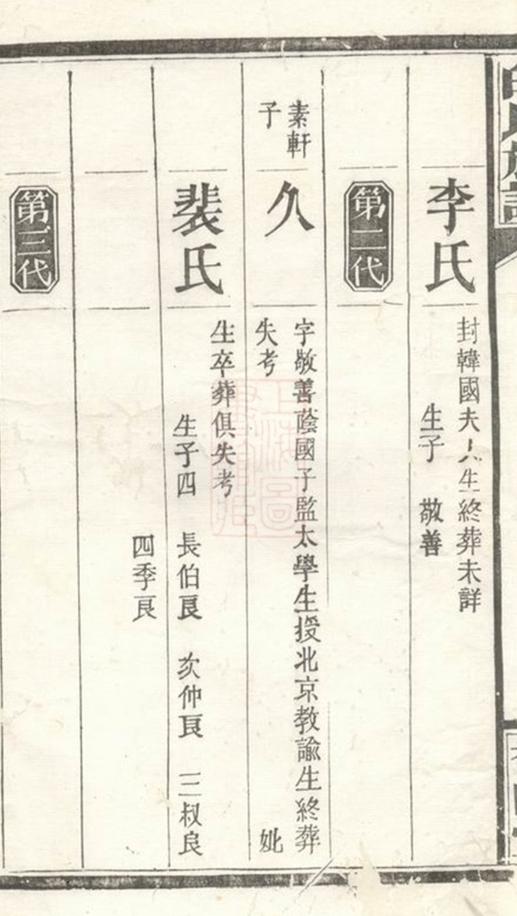 氏族譜
李氏
封韓國夫人生終葬未詳
生子 敬善
第二代
素軒
子
久
字敬善蔭國子監太學生授北京教諭生終葬
失考 妣
裴氏
生卒葬俱失考
生子四 長伯良 次仲良 三叔良
四季良
第三代